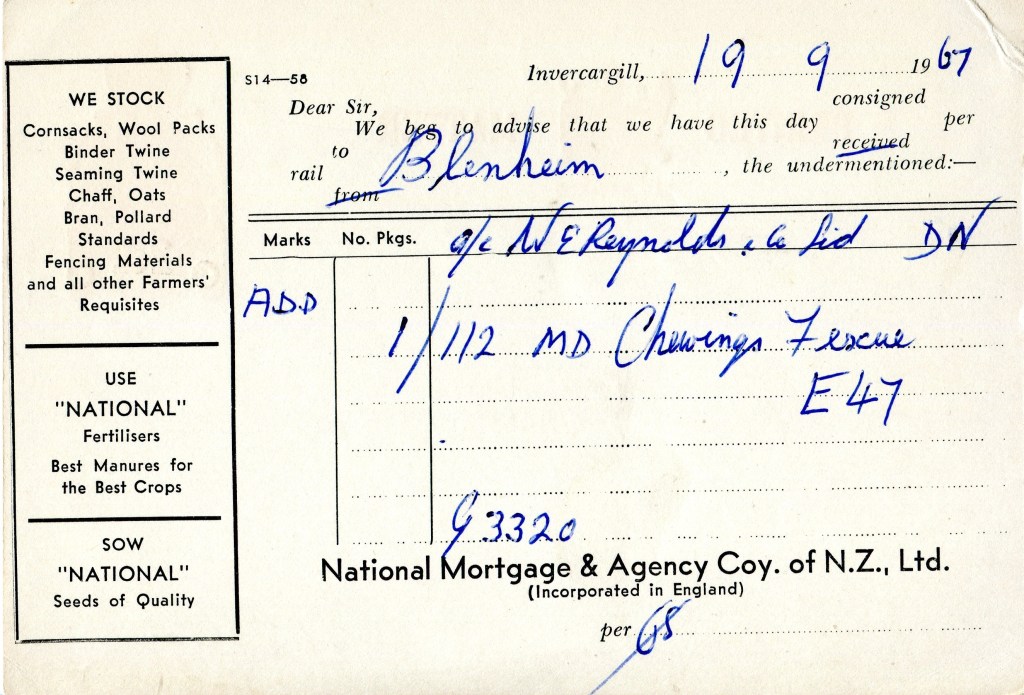 WE STOCK
Cornsacks, Wool Packs
Binder Twine
Seaming Twine
Chaff, Oats
Bran, Pollard
Standards
Fencing Materials
and all other Farmers'
Requisites
USE
"NATIONAL"
Fertilisers
Best Manures for
the Best Crops
SOW
"NATIONAL"
Seeds of Quality
S14—58
Invercargill, 19 9 1967
Dear Sir,
consigned
We beg to advise that we have this day per
received
to
rail Blenheim, the undermentioned:—
from
Marks No. Pkgs. a/c N E Reynolds & Co Ltd DN
ADD
1/112 MD Chewings Fescue
E 47
G 3320
National Mortgage & Agency Coy. of N.Z., Ltd.
(Incorporated in England)
per